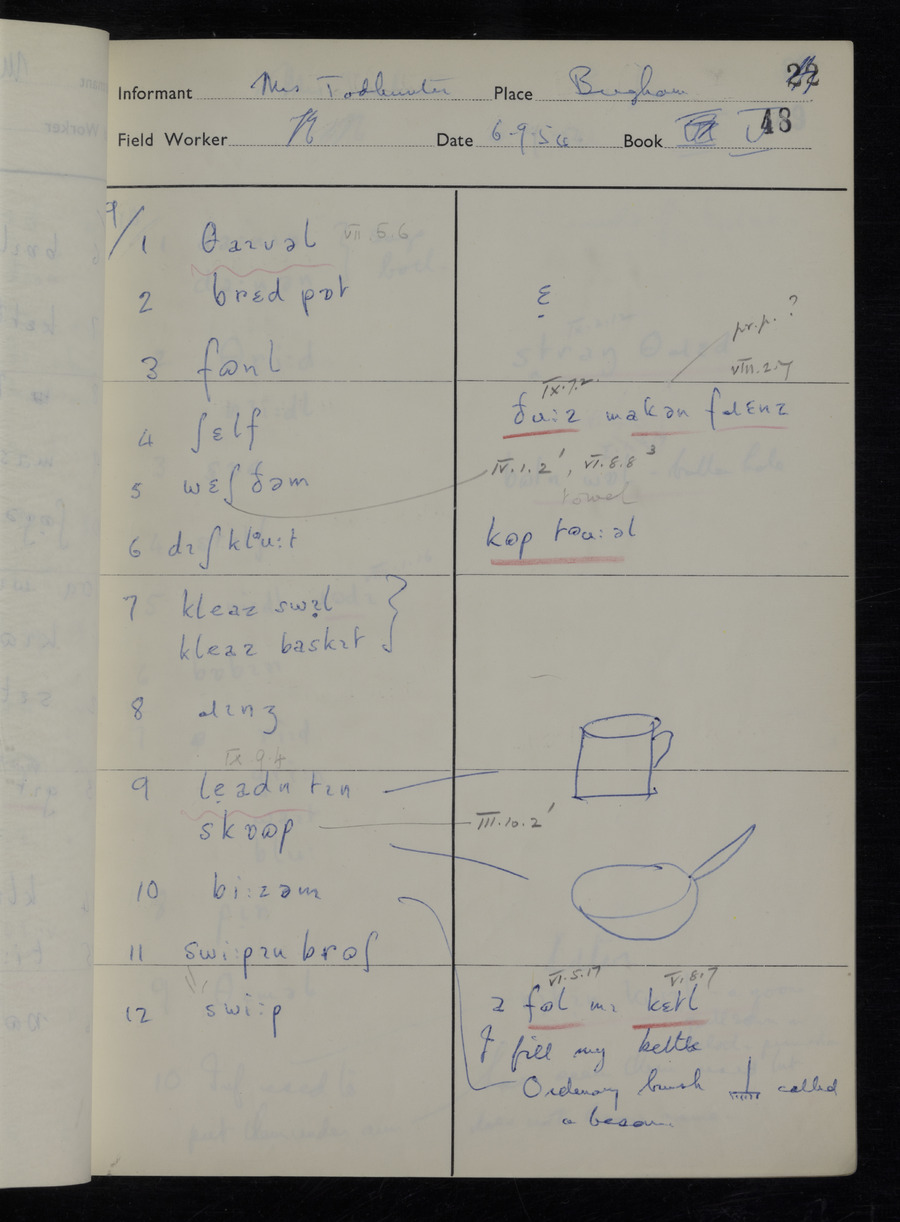 Informant Mrs Todhunter Place
Field Worker Date 6-9-54 Book V
22
48
9/1 θaɪvəl VII.5.6
2 brɛd pɒt
ɛ̣
3 fɵnl
pr.p. ?
VIII.2.7
4 ʃɛlf
IX.7.2
ðu:z makən frɛnz
5 wɛʃ ðəm
IV.1.2', VI.8.8³
towel
6 dɪʃ klᵊu:t
kɵp tɵu:əl
7 kleaz swɪl
kleaz baskɪt
8 dɪnʒ
IX.9.4
9 lẹadn tɪn
skɒɵp
III.10.2'
10 bi:zəm
11 swi:pɪn brɵʃ
VI.5.17 V.8.7
12 swi:p
ɪ fɵl mɪ kɛtl
I fill my kettle
Ordinary brush called
a besom